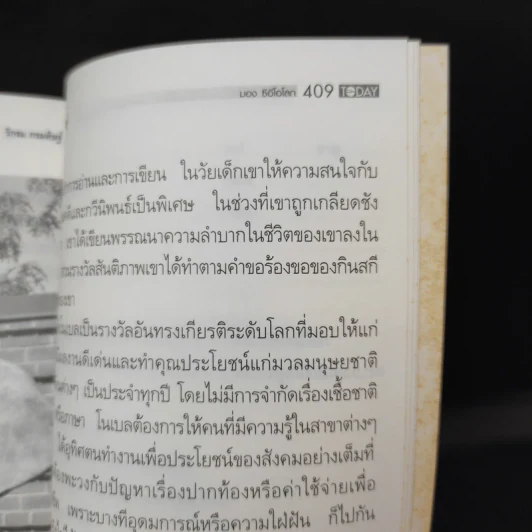 มอง ซีอีโอโลก 409 TODAY
วิกรม กรมดิษฐ์
การอ่านและการเขียน ในวัยเด็กเขาให้ความสนใจกับ
และกวีนิพนธ์เป็นพิเศษ ในช่วงที่เขาถูกเกลียดชัง
เขาได้เขียนพรรณนาความลำบากในชีวิตของเขาลงใน
รางวัลสันติภาพเขาได้ทำตามคำขอร้องขอของกินสกี
ของเขา
โนเบลเป็นรางวัลอันทรงเกียรติระดับโลกที่มอบให้แก่
ผลงานดีเด่นและทำคุณประโยชน์แก่มวลมนุษยชาติ
ต่างๆ เป็นประจำทุกปี โดยไม่มีการจำกัดเรื่องเชื้อชาติ
หรือภาษา โนเบลต้องการให้คนที่มีความรู้ในสาขาต่างๆ
ได้อุทิศตนทำงานเพื่อประโยชน์ของสังคมอย่างเต็มที่
ต้องพะวงกับปัญหาเรื่องปากท้องหรือค่าใช้จ่ายเพื่อ
เพราะบางทีอุดมการณ์หรือความใฝ่ฝัน ก็ไปกัน